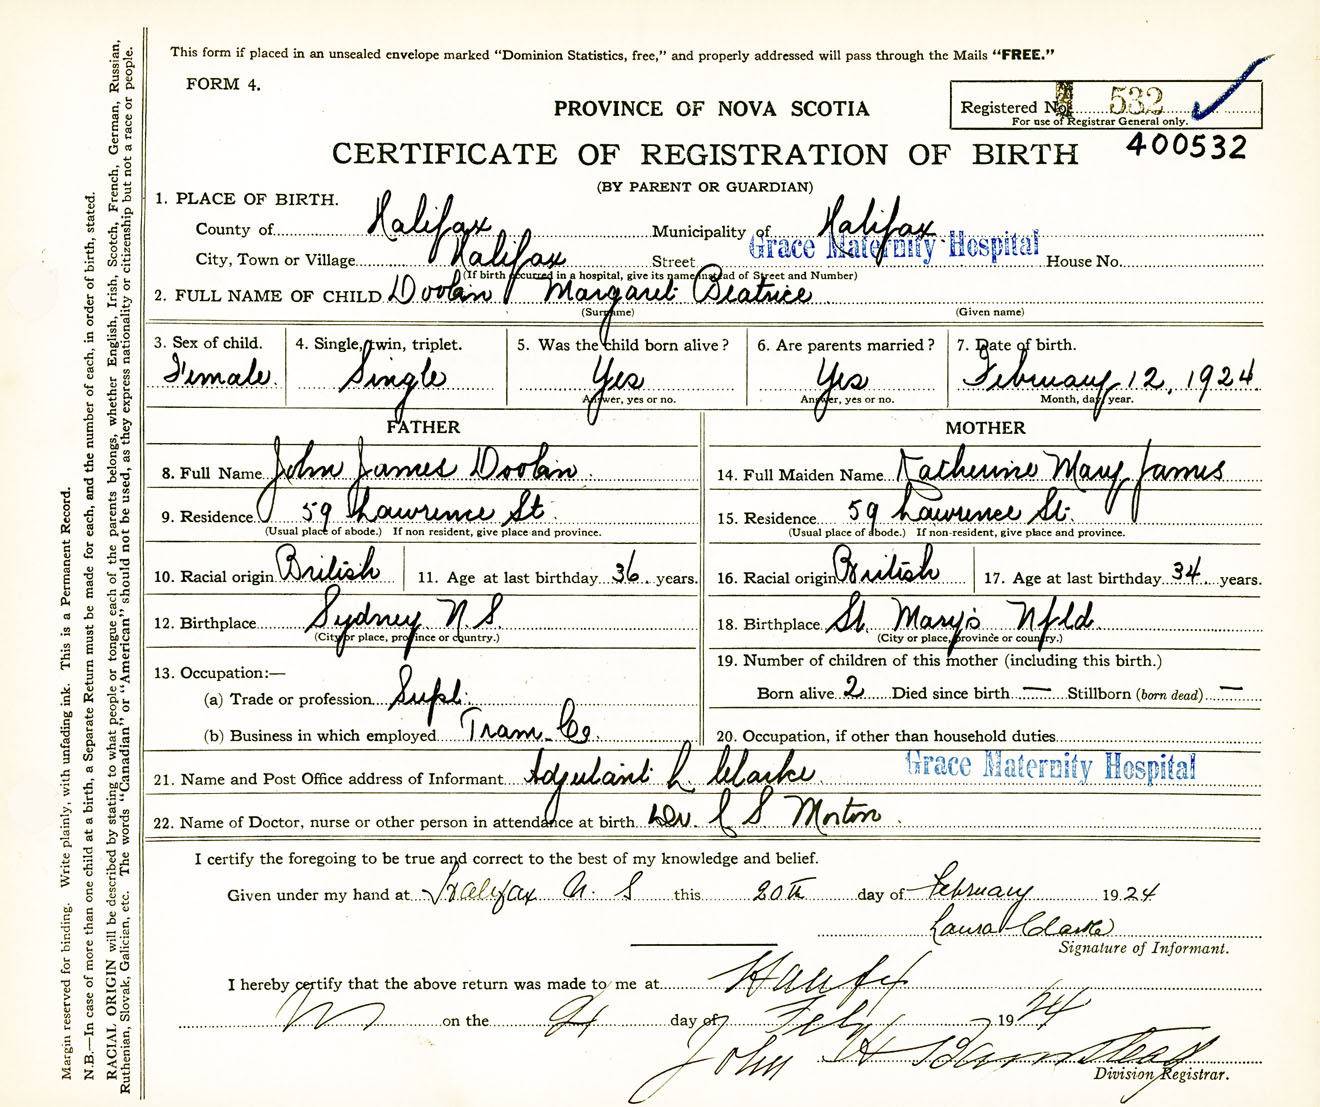 This form if placed in an unsealed envelope marked “Dominion Statistics, free,” and properly addressed will pass through the Mails “FREE.”
FORM 4.
Registered No. 532
For use of Registrar General only.
PROVINCE OF NOVA SCOTIA
400532
CERTIFICATE OF REGISTRATION OF BIRTH
(BY PARENT OR GUARDIAN)
1. PLACE OF BIRTH.
County of Halifax Municipality of Halifax
City, Town or Village Halifax Street Grace Maternity Hospital House No.
(If birth occurred in a hospital, give its name instead of Street and Number)
2. FULL NAME OF CHILD Doolan Margaret Beatrice
(Surname) (Given name)
3. Sex of child. 4. Single, twin, triplet. 5. Was the child born alive? 6. Are parents married? 7. Date of birth.
Female Single Yes Yes February 12, 1924
Answer, yes or no. Answer, yes or no. Month, day, year.
FATHER
8. Full Name John James Doolan
9. Residence 59 Lawrence St
(Usual place of abode.) If non resident, give place and province.
10. Racial origin British 11. Age at last birthday 36 years.
12. Birthplace Sydney N.S.
(City or place, province or country.)
13. Occupation:—
(a) Trade or profession Supt.
(b) Business in which employed Tram. Co
MOTHER
14. Full Maiden Name Katherine Mary James
15. Residence 59 Lawrence St.
(Usual place of abode.) If non-resident, give place and province.
16. Racial origin British 17. Age at last birthday 34 years.
18. Birthplace St. Mary's Nfld.
(City or place, province or country.)
19. Number of children of this mother (including this birth.)
Born alive 2 Died since birth — Stillborn (born dead) —
20. Occupation, if other than household duties
21. Name and Post Office address of Informant Adjutant L. Clarke Grace Maternity Hospital
22. Name of Doctor, nurse or other person in attendance at birth Dr. S Morton
I certify the foregoing to be true and correct to the best of my knowledge and belief.
Given under my hand at Halifax N. S this 20th day of February 1924
Laura Clarke
Signature of Informant.
I hereby certify that the above return was made to me at Halifax
on the day of Feb 1924
John
Division Registrar.
Margin reserved for binding. Write plainly, with unfading ink. This is a Permanent Record.
N.B.—In case of more than one child at a birth, a Separate Return must be made for each, and the number of each, in order of birth, stated.
RACIAL ORIGIN will be described by stating to what people or tongue each of the parents belongs, whether English, Irish, Scotch, French, German, Russian,
Ruthenian, Slovak, Galician, etc. The words “Canadian” or “American” should not be used, as they express nationality or citizenship but not a race or people.